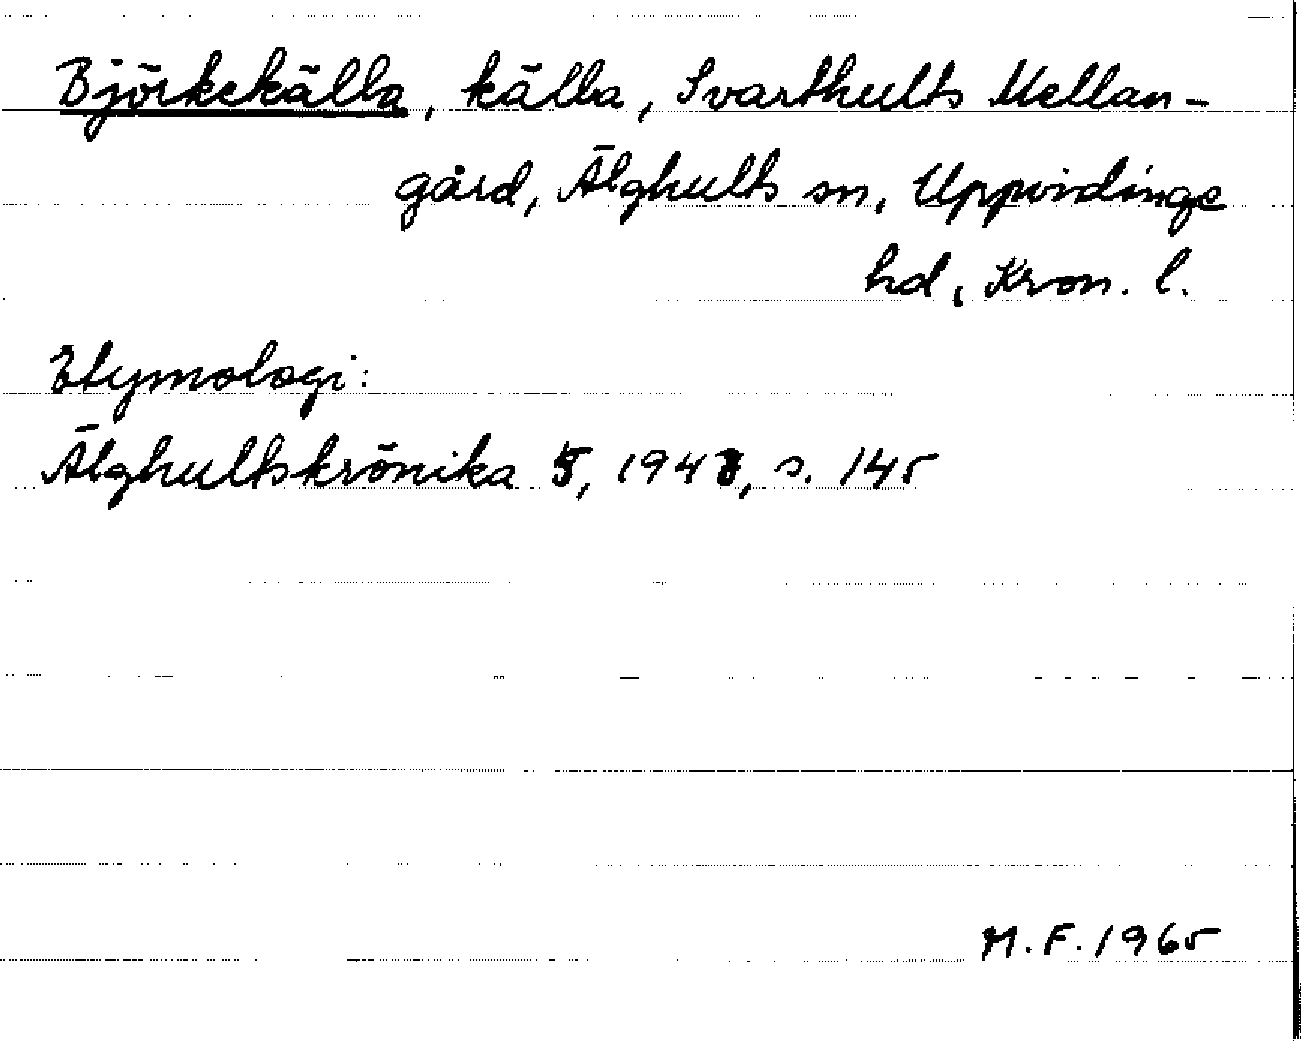 Björkekälla, källa, Svarthults Mellan-
gård, Älghults sn, Uppvidinge
hd, Kron. l.
Etymologi:
Älghultskrönika 5, 1948, s. 145
M.F. 1965